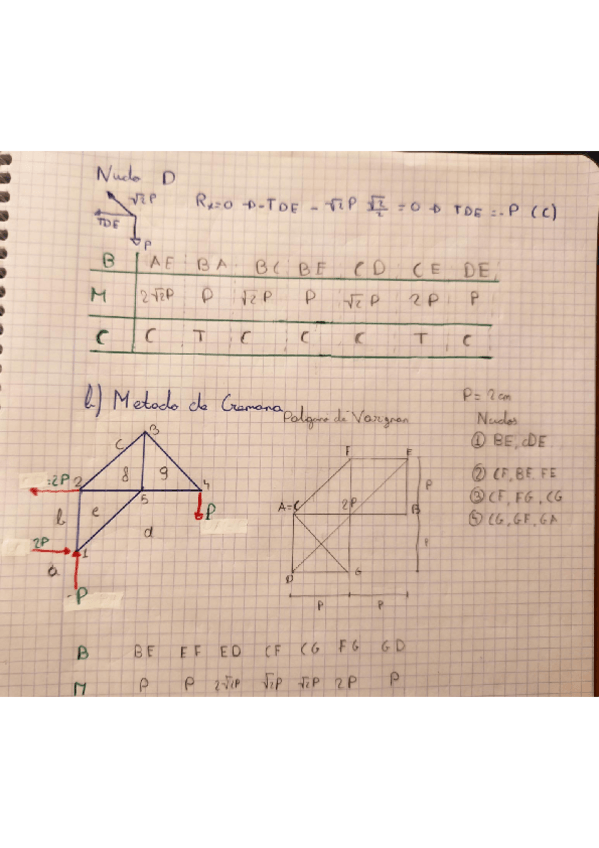 Nudo D
√2P
TDE
P
Rx=0 → -TDE - √2P √2/2 = 0 → TDE = -P (C)
B AE BA BC BE CD CE DE
M 2√2P P √2P P √2P 2P P
C C T C C C T C
b) Metodo de Cremona
Poligono de Varignon
P = 2cm
Nudos
① BE, DE
② CF, BF, FE
③ CF, FG, CG
⑤ CG, GF, GA
3
C
2P 2 8 9 4
5
b e P
d
2P 1
a
P
F E
P
A=C 2P B
D G
P P
B BE EF ED CF CG FG GD
M P P 2√2P √2P √2P 2P P